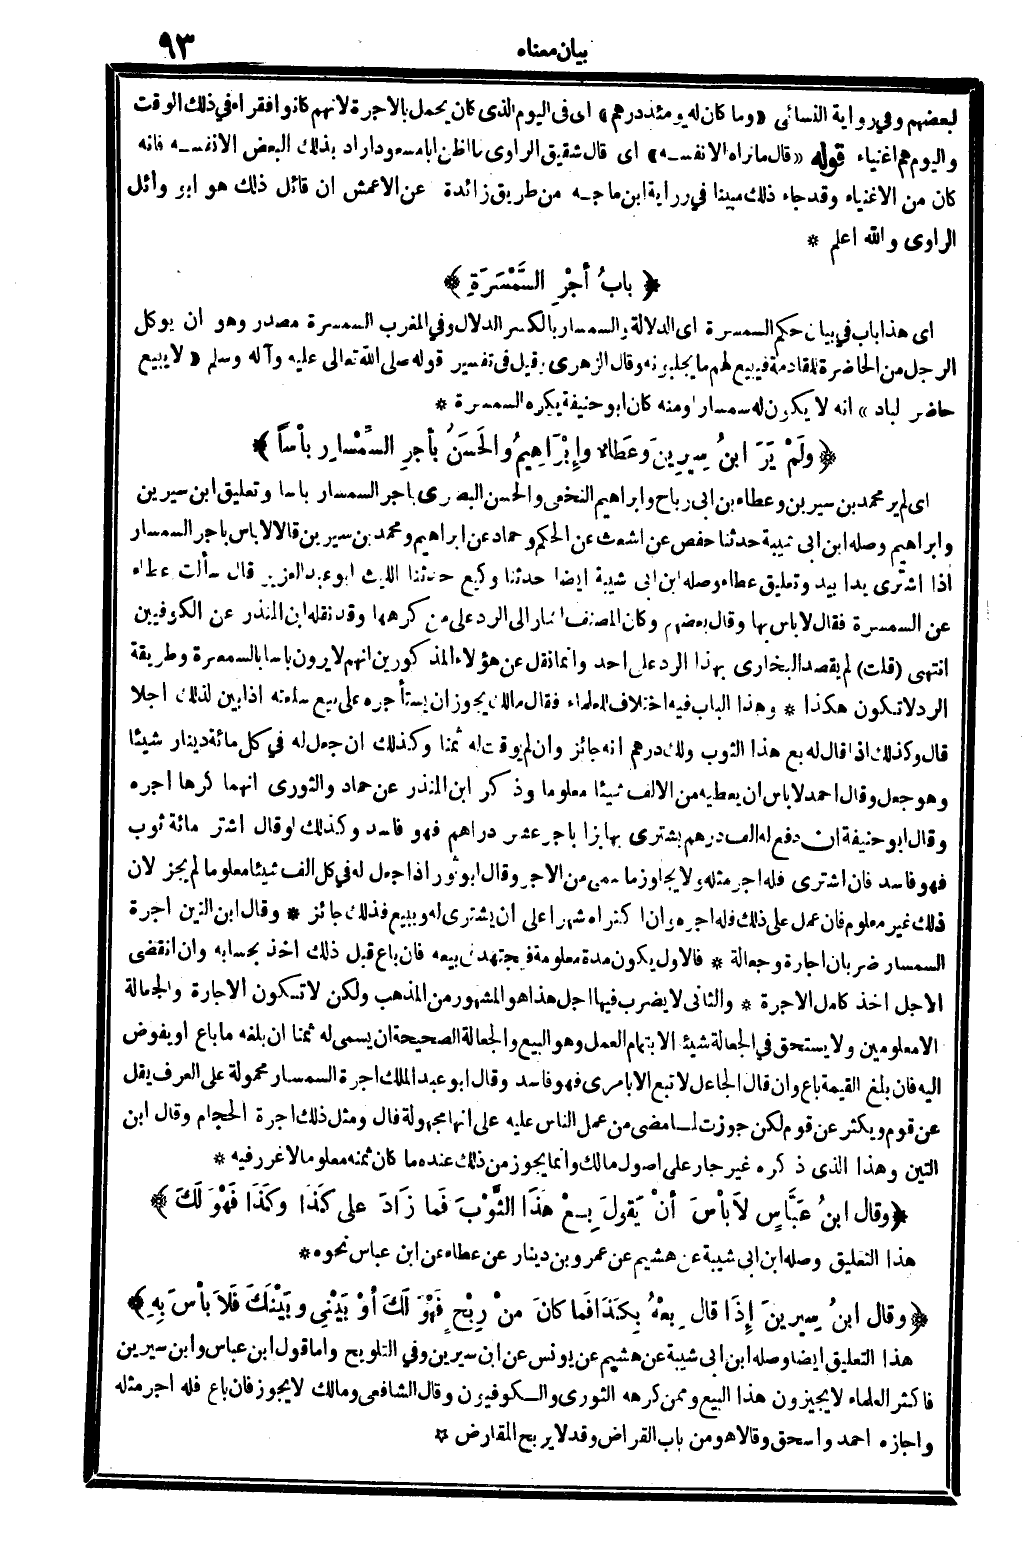 بيان معناه
٩٣
لبعضهم وفي رواية النسائى «وما كان له يومئذ درهم» اى فى اليوم الذى كان يحمل بالاجرة لانهم كانوا فقراء في ذلك الوقت
واليوم هم اغنياء قوله «قال ما نراه الا نفسه» اى قال شقيق الراوى ما اظن ابا مسعود اراد بذلك البعض الا نفسه فانه
كان من الاغنياء وقد جاء ذلك مبينا في رواية ابن ماجه من طريق زائدة عن الاعمش ان قائل ذلك هو ابو وائل
الراوى والله اعلم *
﴿ بابُ أجْرِ السَّمْسَرَةِ ﴾
اى هذا باب في بيان حكم السمسرة اى الدلالة والسمسار بالكسر الدلال وفي المغرب السمسرة مصدر وهو ان يوكل
الرجل من الحاضرة للقادمة فيبيع لهم ما يجلبونه وقال الزهرى وقيل فى تفسير قوله صلى الله تعالى عليه وآله وسلم «لا يبيع
حاضر لباد» انه لا يكون له سمسارا ومنه كان ابو حنيفة يكره السمسرة *
﴿ ولَمْ يَرَ ابنُ سِيرِينَ وعَطَاءٌ وإبْرَاهِيمُ والحَسَنُ بأجرِ السِّمْسارِ بأساً ﴾
اى لم ير محمد بن سيرين وعطاء بن ابى رباح وابراهيم النخعى والحسن البصرى باجر السمسار باسا وتعليق ابن سيرين
وابراهيم وصله ابن ابى شيبة حدثنا حفص عن اشعث عن الحكم وحماد عن ابراهيم ومحمد بن سيرين قالا لا باس باجر السمسار
اذا اشترى يدا بيد وتعليق عطاء وصله ابن ابى شيبة ايضا حدثنا وكيع حدثنا الليث ابو عبد العزيز قال سألت عطاء
عن السمسرة فقال لا باس بها وقال بعضهم وكان المصنف اشار الى الرد على من كرهها وقد نقله ابن المنذر عن الكوفيين
انتهى (قلت) لم يقصد البخارى بهذا الرد على احد وانما نقل عن هؤلاء المذكورين انهم لا يرون باسا بالسمسرة وطريقة
الرد لا تكون هكذا * وهذا الباب فيه اختلاف العلماء فقال مالك يجوز ان يستأجره على بيع سلعته اذا بين لذلك اجلا
قال وكذلك اذا قال له بع هذا الثوب ولك درهم انه جائز وان لم يوقت له ثمنا وكذلك ان جعل له في كل مائة دينار شيئا
وهو جعل وقال احمد لا باس ان يعطيه من الالف شيئا معلوما وذكر ابن المنذر عن حماد والثورى انهما كرها اجره
وقال ابو حنيفة ان دفع له الف درهم يشترى بها بزا باجر عشر دراهم فهو فاسد وكذلك لو قال اشتر مائة ثوب
فهو فاسد فان اشترى فله اجر مثله ولا يجاوز ما سمى من الاجر وقال ابو ثور اذا جعل له في كل الف شيئا معلوما لم يجز لان
ذلك غير معلوم فان عمل على ذلك فله اجره وان اكتراه شهرا على ان يشترى له ويبيع فذلك جائز * وقال ابن التين اجرة
السمسار ضربان اجارة وجعالة * فالاول يكون مدة معلومة فيجتهد فى بيعه فان باع قبل ذلك اخذ بحسابه وان انقضى
الاجل اخذ كامل الاجرة * والثانى لا يضرب فيها اجل هذا هو المشهور من المذهب ولكن لا تكون الاجارة والجعالة
الا معلومين ولا يستحق في الجعالة شيئا الا بتمام العمل وهو البيع والجعالة الصحيحة ان يسمى له ثمنا ان بلغه ما باع او يفوض
اليه فان بلغ القيمة باع وان قال الجاعل لا تبع الا بامرى فهو فاسد وقال ابو عبد الملك اجرة السمسار محمولة على العرف يقل
عن قوم ويكثر عن قوم لكن جوزت لما مضى من عمل الناس عليه على انها مجهولة قال ومثل ذلك اجرة الحجام وقال ابن
التين وهذا الذى ذكره غير جار على اصول مالك وانما يجوز من ذلك عنده ما كان ثمنه معلوما لا غرر فيه *
﴿ وقال ابنُ عبَّاسٍ لاَ بأْسَ أنْ يَقولَ بِعْ هذَا الثَّوْبَ فَما زَادَ على كَذَا وكَذَا فَهْوَ لَكَ ﴾
هذا التعليق وصله ابن ابى شيبة عن هشيم عن عمرو بن دينار عن عطاء عن ابن عباس نحوه *
﴿ وقال ابنُ سِيرِينَ إذَا قال بِعْهُ بِكَذَا فَما كانَ منْ رِبْحٍ فَهْوَ لَكَ أوْ بَيْنِي وبَيْنَكَ فَلاَ بأْسَ بِهِ ﴾
هذا التعليق ايضا وصله ابن ابى شيبة عن هشيم عن يونس عن ابن سيرين وفي التلويح واما قول ابن عباس وابن سيرين
فاكثر العلماء لا يجيزون هذا البيع وممن كرهه الثورى والكوفيون وقال الشافعى ومالك لا يجوز فان باع فله اجر مثله
واجازه احمد واسحق وقالا هو من باب القراض وقد لا يربح المقارض *